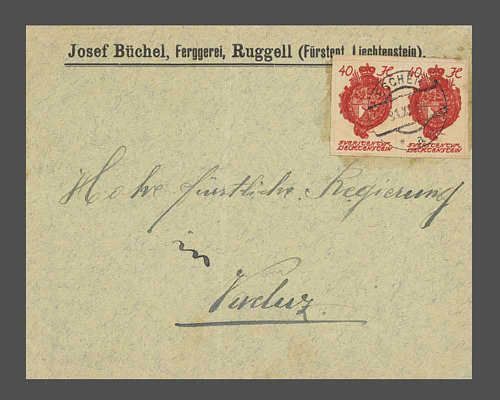 Josef Büchel, Ferggerei, Ruggell (Fürstent. Liechtenstein).
40 H 40 H
FVERSTENTVM FVERSTENTVM
LIECHTENSTEIN LIECHTENSTEIN
Hohe fürstliche Regierung
in
Vaduz.